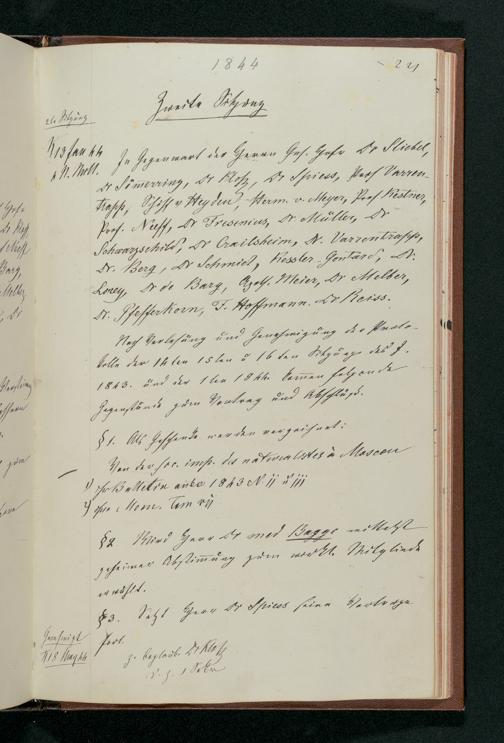 1844
221
Zweite Sitzung
2te Sitzung
13 Jan 44
In Gegenwart der Herren Geh. Hofr Dr Stiebel,
Dr Sömerring, Dr Kloß, Dr Spiess, Prof Varren-
trapp, Schöff v Heyden, Herm. v. Meyer, Prof Kestner,
Prof. Neeff, Dr Fresenius, Dr Müller, Dr
Schwarzschild, Dr Crailsheim, Dr. Varrentrapp,
Dr. Berg, Dr Schmidt, Kessler-Gontard, Dr.
Lorey, Dr de Bary, Meier, Dr Melber,
Dr. Pfefferkorn, F. Hoffmann. Dr Reiss.
Nach Verlesung und Genehmigung der Proto-
kolle der 14ten 15ten u 16ten Sitzung des J.
1843. und der 1ten 1844 kamen folgende
Gegenstände zum Vortrag und Abschluss.
§1. Als Geschenke werden verzeichnet:
Von der Soc. imp. des naturalistes à Moscou
1) ihr Bulletin 1843 N II u III
2) ihre Mem. Tom VII
§2 Wird Herr Dr med Bagge mittelst
geheimer Abstimmung zum wirkl. Mitgliede
erwählt.
§3. Setzt Herr Dr Spiess seine Vorträge
fort.
Genehmigt
18 44
z. beglaub. Dr Kloß